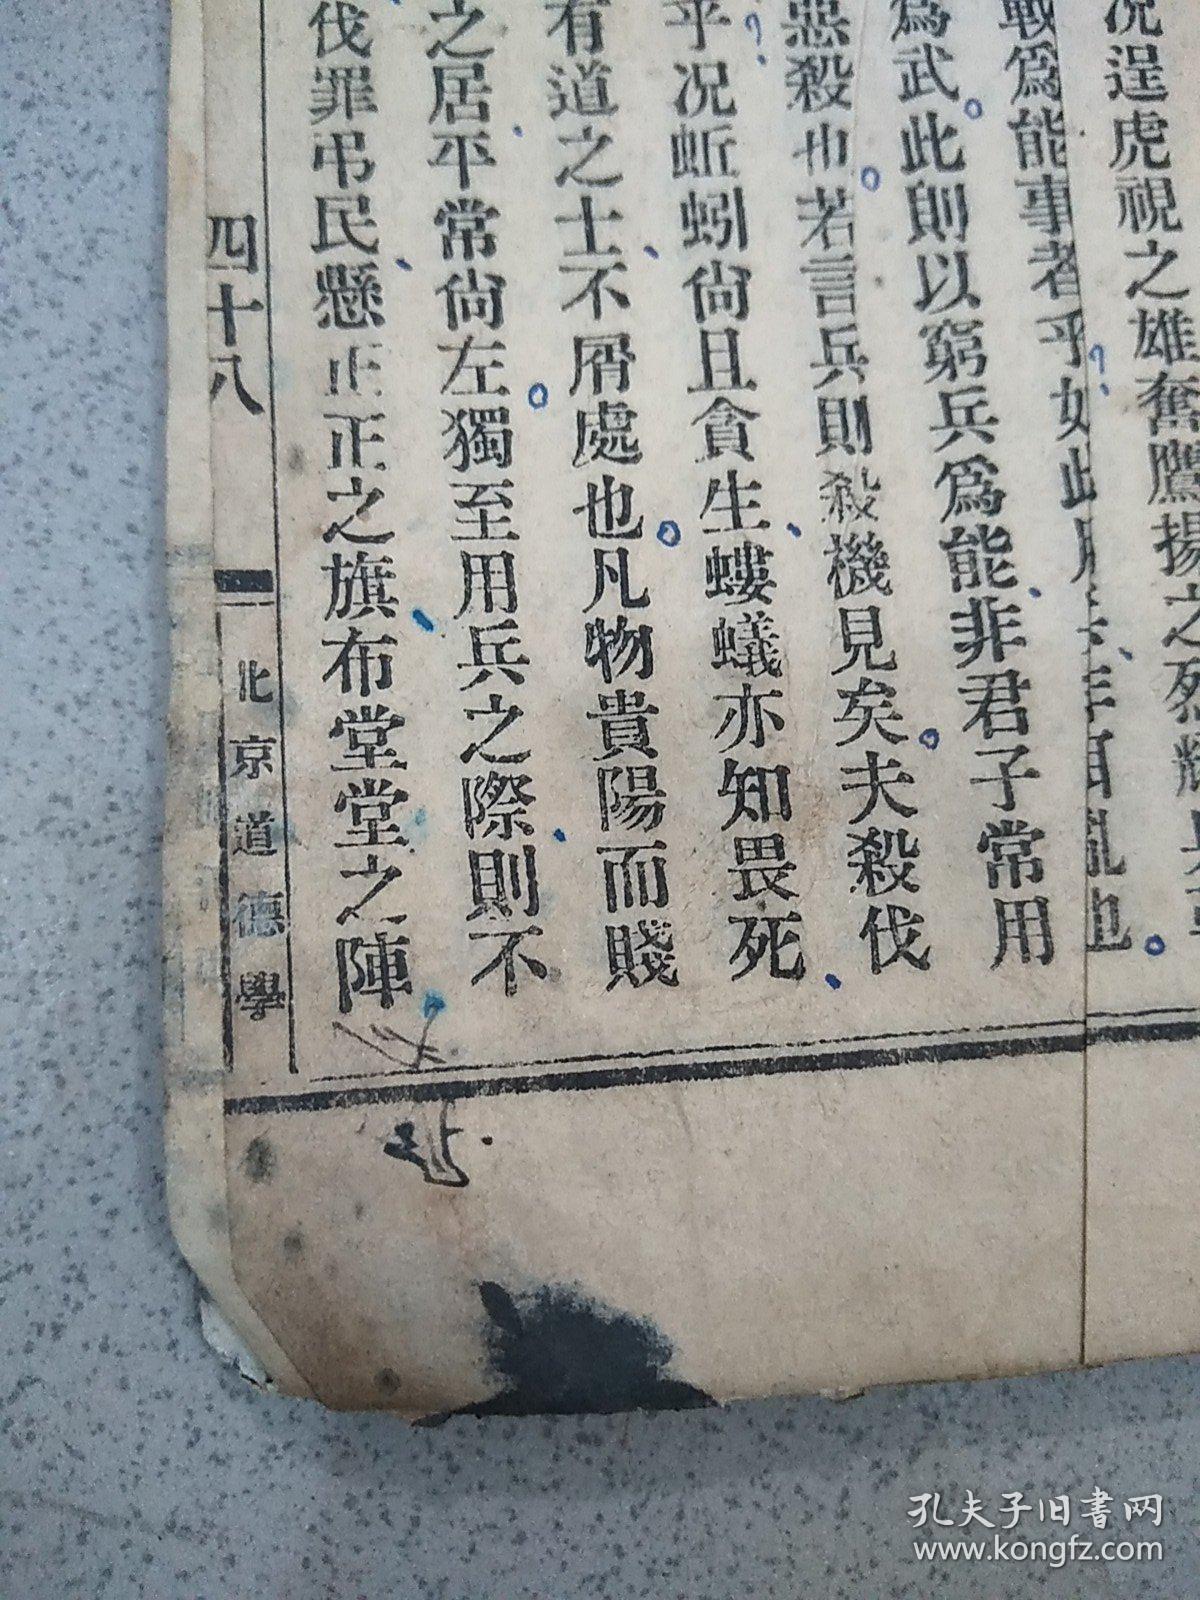 况逞虎視之雄奮鷹揚之烈
戰爲能事者乎如此
爲武此則以窮兵爲能非君子常用
惡殺也若言兵則殺機見矣夫殺伐
乎况蚯蚓尙且貪生螻蟻亦知畏死
有道之士不屑處也凡物貴陽而賤
之居平常尙左獨至用兵之際則不
伐罪弔民懸正正之旗布堂堂之陣
四十八 北京道德學
孔夫子旧书网
www.kongfz.com